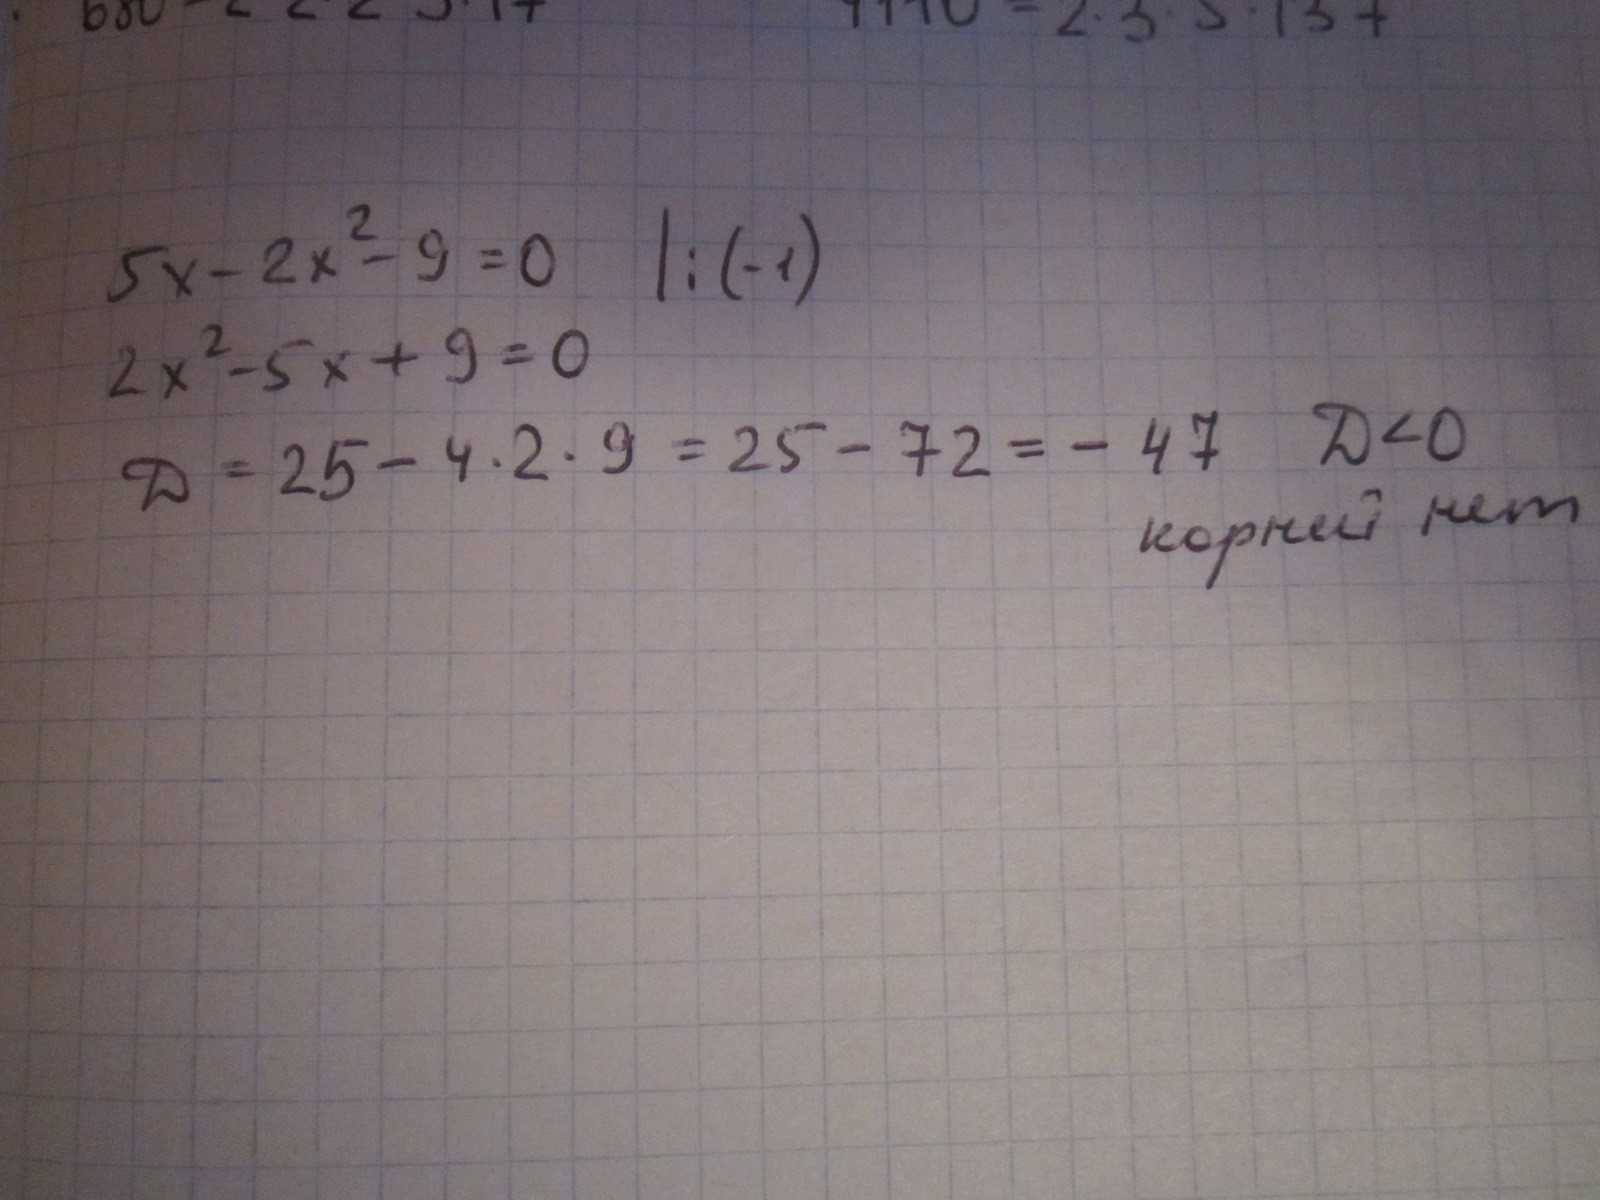 680 = 2 2 2 5·17
4110 = 2·3·5·137
5x - 2x² - 9 = 0 |:(-1)
2x² - 5x + 9 = 0
Д = 25 - 4·2·9 = 25 - 72 = - 47 Д<0
корней нет